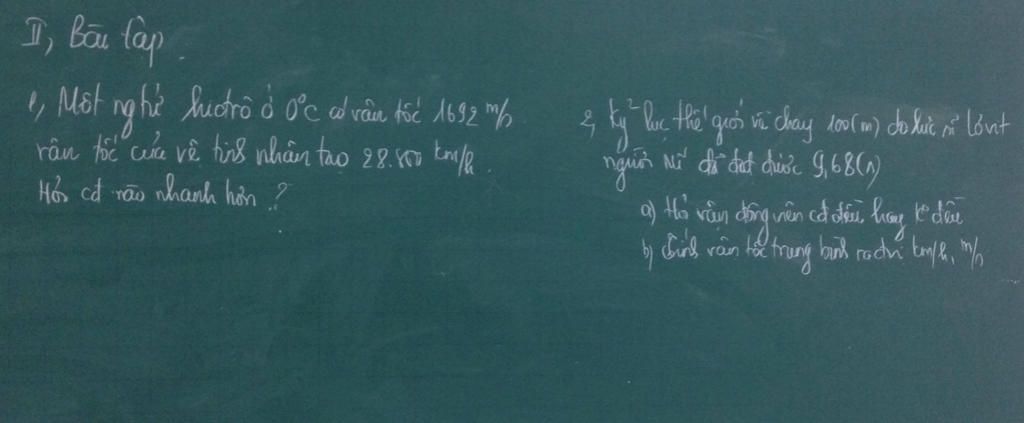 II, Bài tập
1, Một ngtử hiđrô ở 0°C có vận tốc 1692 m/s
vận tốc của vệ tinh nhân tạo 28.800 km/h.
Hỏi cđ nào nhanh hơn ?
2, Kỷ lục thế giới về chạy 100(m) do lực sĩ
người Mĩ đã đạt được 9,68(s)
a) Hỏi vận động viên cđ đều hay ko đều
b) Tính vận tốc trung bình ra đvị km/h, m/s